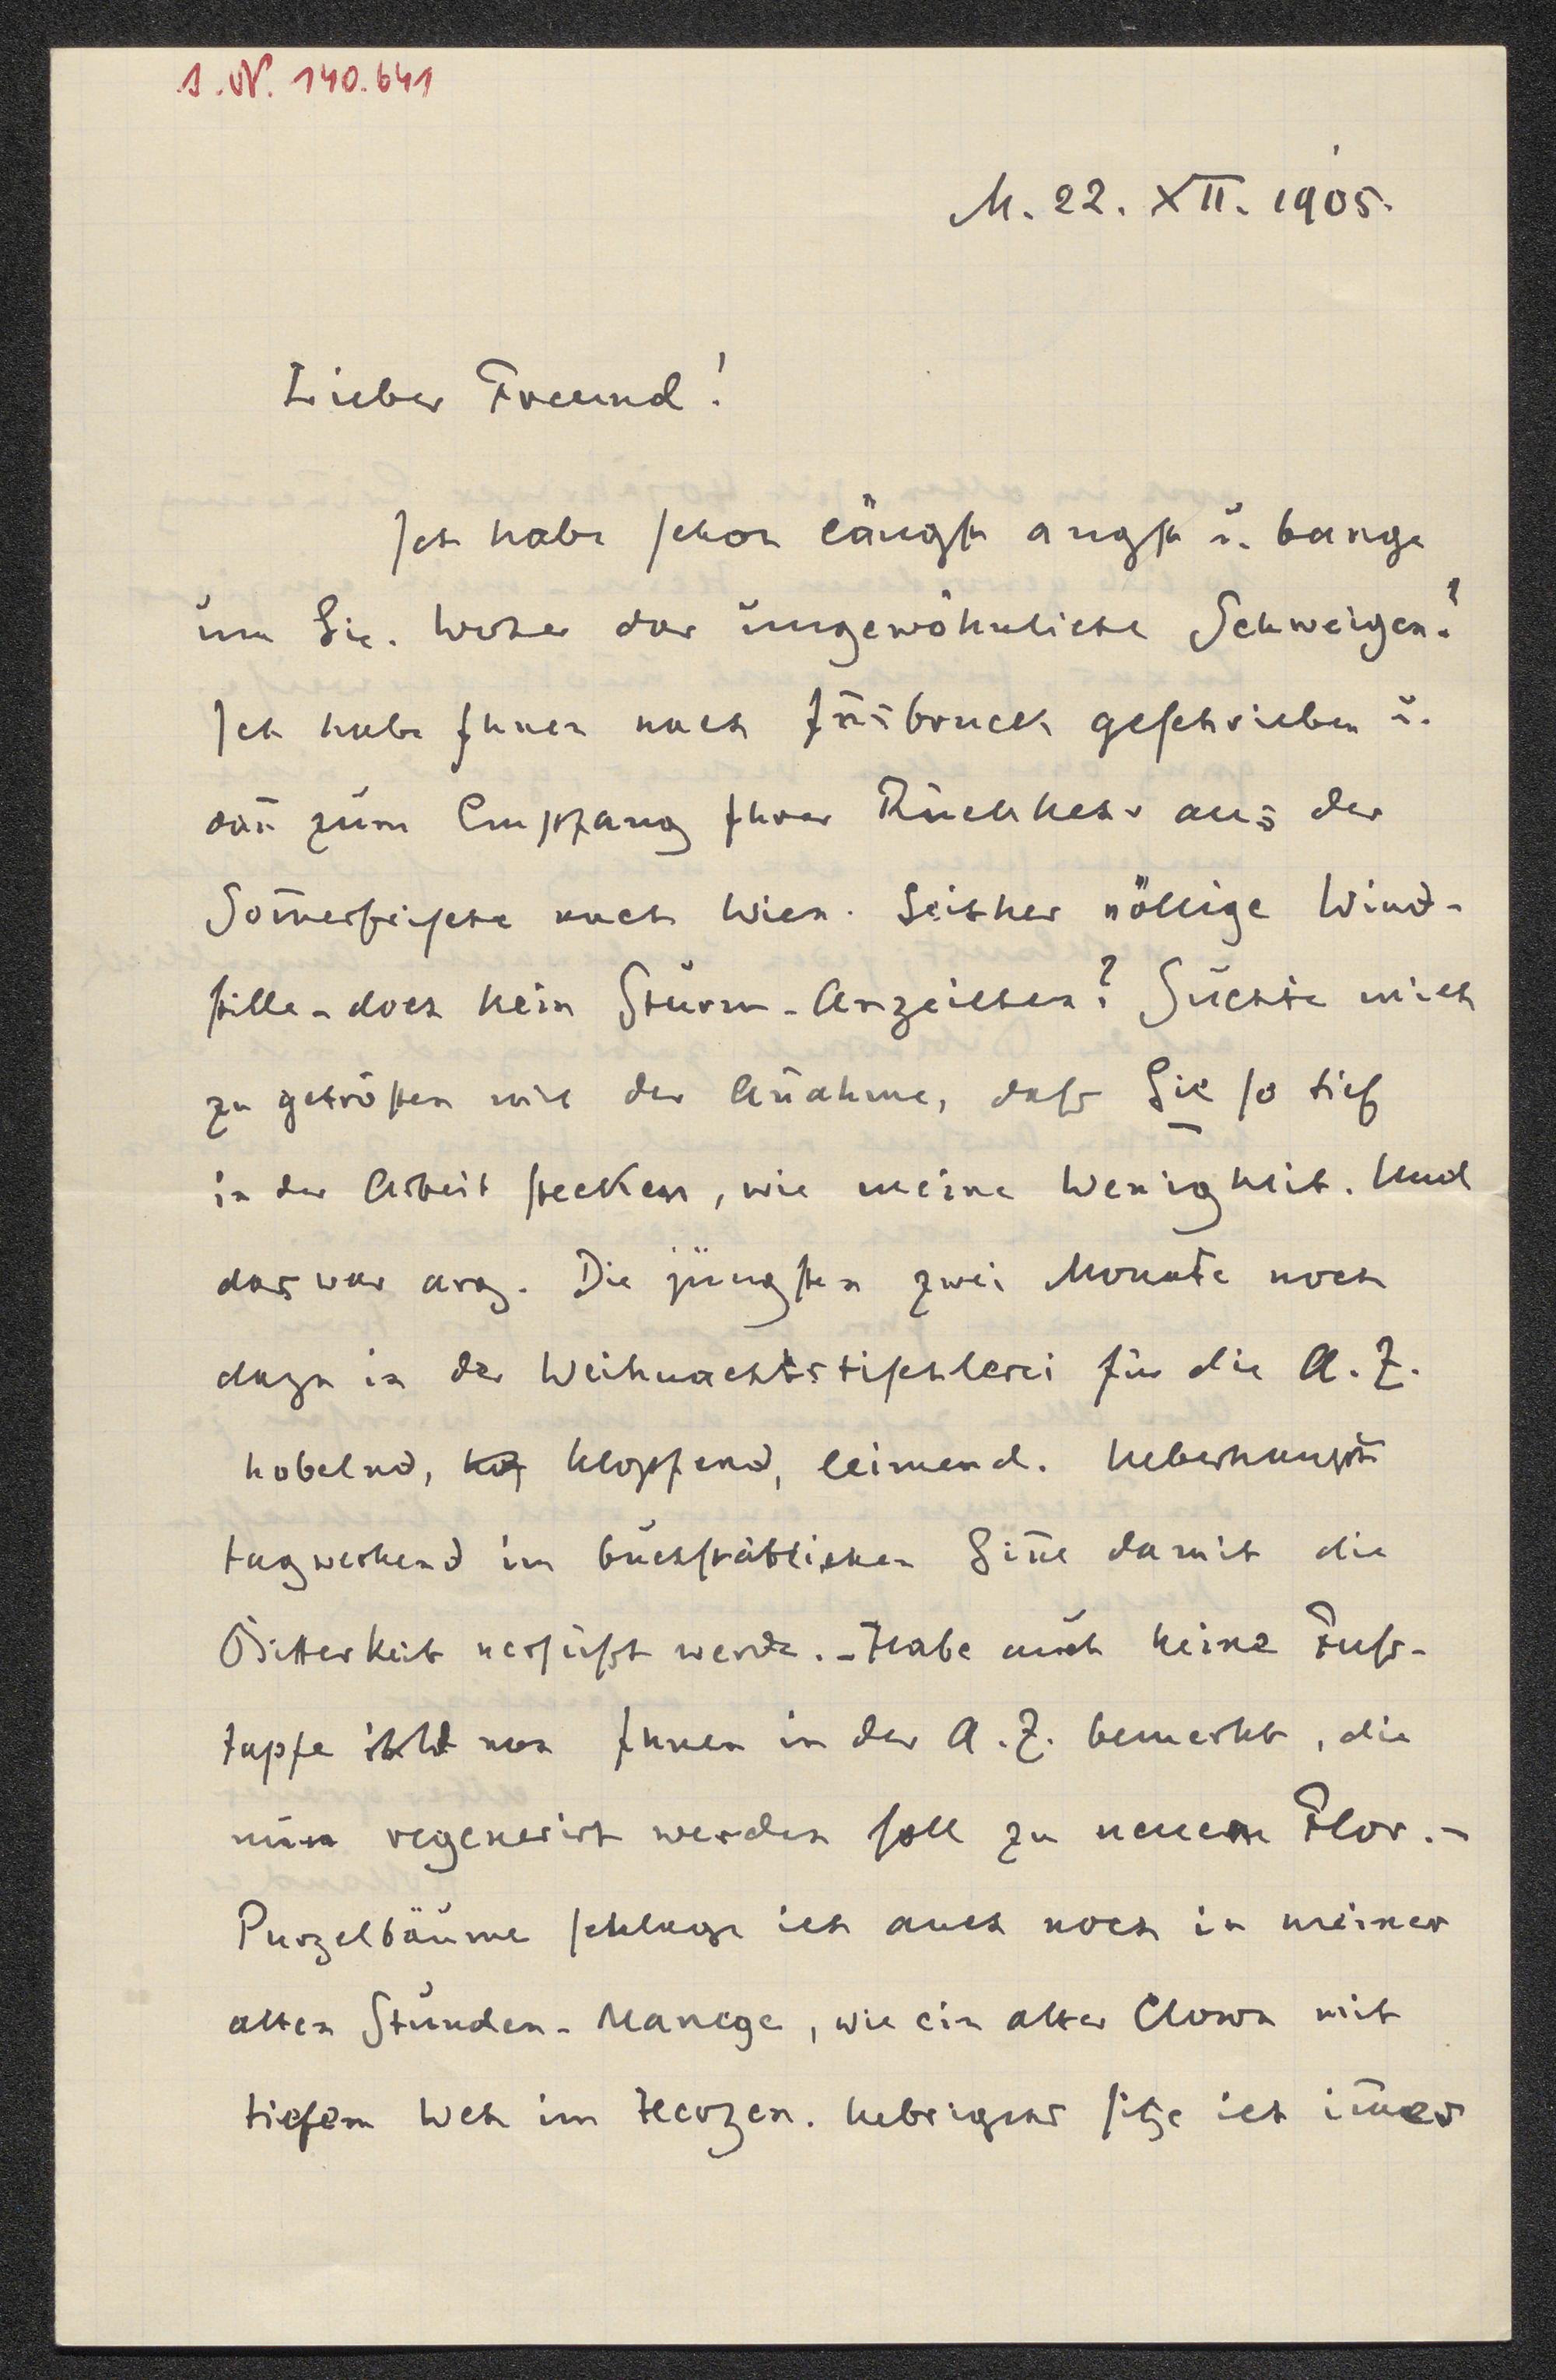 I.N. 140.641
M. 22. XII. 1905.
Lieber Freund!
Ich habe schon längst angst u. bange
um Sie. Woher das ungewöhnliche Schweigen?
Ich habe Ihnen nach Iñsbruck geschrieben u.
dañ zum Empfang Ihrer Rückkehr aus der
Som̄erfrische nach Wien. Seither völlige Wind-
stille - doch kein Sturm-Anzeichen? Suchte mich
zu getrösten mit der Añahme, dass Sie so tief
in der Arbeit stecken, wie meine Wenigkeit. Und
das war arg. Die jüngsten zwei Monate noch
dazu in der Weihnachtstischlerei für die A. Z.
hobelnd, klopfend, leimend. Ueberhaupt
tagwerkend im buchstäblichen Siñe damit die
Bitterkeit versüßt werde. - Habe auch keine Fuss-
tapfe von Ihnen in der A. Z. bemerkt, die
nun regenerirt werden soll zu neuem Flor. -
Purzelbäume schlage ich auch noch in meiner
alten Stunden-Manege, wie ein alter Clown mit
tiefem Weh im Herzen. Uebrigens sitze ich im̄er